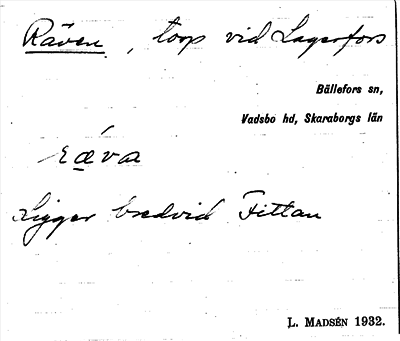 Räven, torp vid Lagerfors
Bällefors sn,
Vadsbo hd, Skaraborgs län
ræ̀va
Ligger bredvid Fittan
L. MADSÉN 1932.